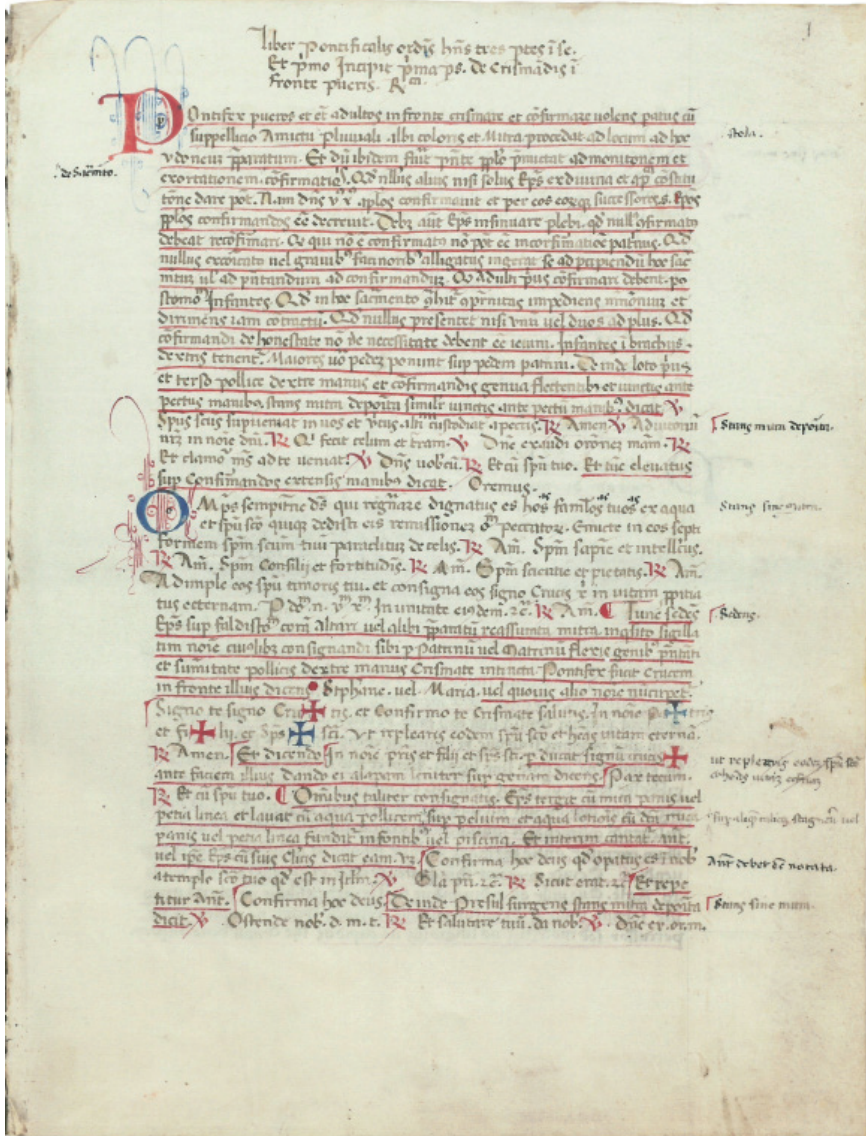 liber Pontificalis ordis hns tres ptes i se.
Et pmo Incipit pma ps. de Crismadis i
fronte pueris. R
Pontifex pueros et ee adultos in fronte crismare et cofirmare uolens patus cu
suppellicio Amictu pluuiali. albi coloris et Mitra procedat ad locum ad hoc
ydoneuz paratum. Et du ibidem fuit pnte pplo pmictat admonitonem et
de Sacmto.
stola.
exortationem confirmatois. Qd nllus alius nisi solus Eps ex diuina et constitu
tone dare pot. Nam dns aplos confirmauit et per eos eorqz successores. Epos
pplos confirmandos ee decreuit. Debz aut Eps insinuare plebi. qd null confirmato
debeat reconfirmari. Qd qui no e confirmato no pot ee in confirmatioe patrinus. Qd
nullus excoicato uel grauib facinorib alligatus ingerat se ad percipiendu hoc sac
mtuz ul ad pntandum ad confirmanduz. Qd Adulti pus confiteri debent. po
stomo Infantes. Qd in hoc sacmento et
dirimens iam cotractu. Qd nullus presentet nisi unu uel duos ad plus. Qd
cofirmandi de honestate no de necessitate debent ee ieiuni. Infantes i brachiis
dextris tenent. Maiores uo pedez ponunt sup pedem patrini. Deinde loto pus
et terso pollice dextre manus et cofirmandis genua flectentib et iunctis ante
pectus manibz. stans mitra deposita simılr iunctis ante pectus manib. dicat. V
Spus scus supueniat in uos et custodiat a peccatis. R Amen V Adiutoriu
Stans mitra deposita.
nrz in noie dni. R Qi fecit celum et tram. V Dne exaudi oronez meam. R
Et clamor ms ad te ueniat. V Dns uobcu. R Et cu spu tuo. Et tuc eleuatis
sup Confirmandos extensis manibz dicat. Oremus.
Omps sempitne ds qui regnare dignatus es hos famlos tuos ex aqua
Stans sine mitra.
et spu sco quiqz dedisti eis remissionez om peccator. Emicte in eos septi
formem spm scum tuu paraclituz de celis. R Am. Spm sapie et intellcus.
R Am. Spm Consilij et fortitudis. R Am. Spm scientie et pietatis. R Am.
Adimple eos spu timoris tui. et consigna eos signo Crucis x in uitam ppitia
tus eternam. P do. n. In unitate eiusdem. zc. R Am. Tunc sedes
Sedens.
Eps sup faldistom cora Altari uel alibi paratu reassumta mitra inqsito sigilla
tim noie cuiuslibz consignandi sibi p Patrinu uel Matrinu flexis genib pntati
et sumitate pollicis dextre manus Crismate intincta. Pontifex facit Crucem
in fronte illius dicens Stphane. uel. Maria. uel quouis alio noie nuncupet.
Signo te signo Cru✠cis. et Confirmo te Crismate salutis. In noie pa✠tris
et fi✠lij. et Sps ✠ sci. Vt replearis eodem spu sco et heas uitam eterna.
R Amen. Et dicendo In noie pris et filii et sps sci. p ducat signu crucis ✠
ut replearis eodez spu sco
et habeas uitaz eternaz
ante faciem illius. Dando ei alapam leuiter sup genam dicens. Pax tecum.
R Et cu spu tuo. Omibus taliter consignatis. Eps tergit cu mica panis uel
petia linea et lauat cu aqua pollicem. sup peluim. et aqua lotiois cu dca mica
panis uel petia linea fundat in fontib uel piscina. Et interim cantat. Ant.
uel ipe Eps cu suis Clicis dicat eam. vz Confirma hoc deus qd opatus es i nob
Ant debet ee notata.
a templo sco tuo qd est in Jrlm. V Gla pri. zc. R Sicut erat. zc Et repe
titur Ant. Confirma hoc deus. Deinde Presul surgens stans mitra deposita
Stans sine mitra.
dicit. V Ostende nob. d. m. t. R Et salutare tuu. da nob. V Dne ex. or. m.